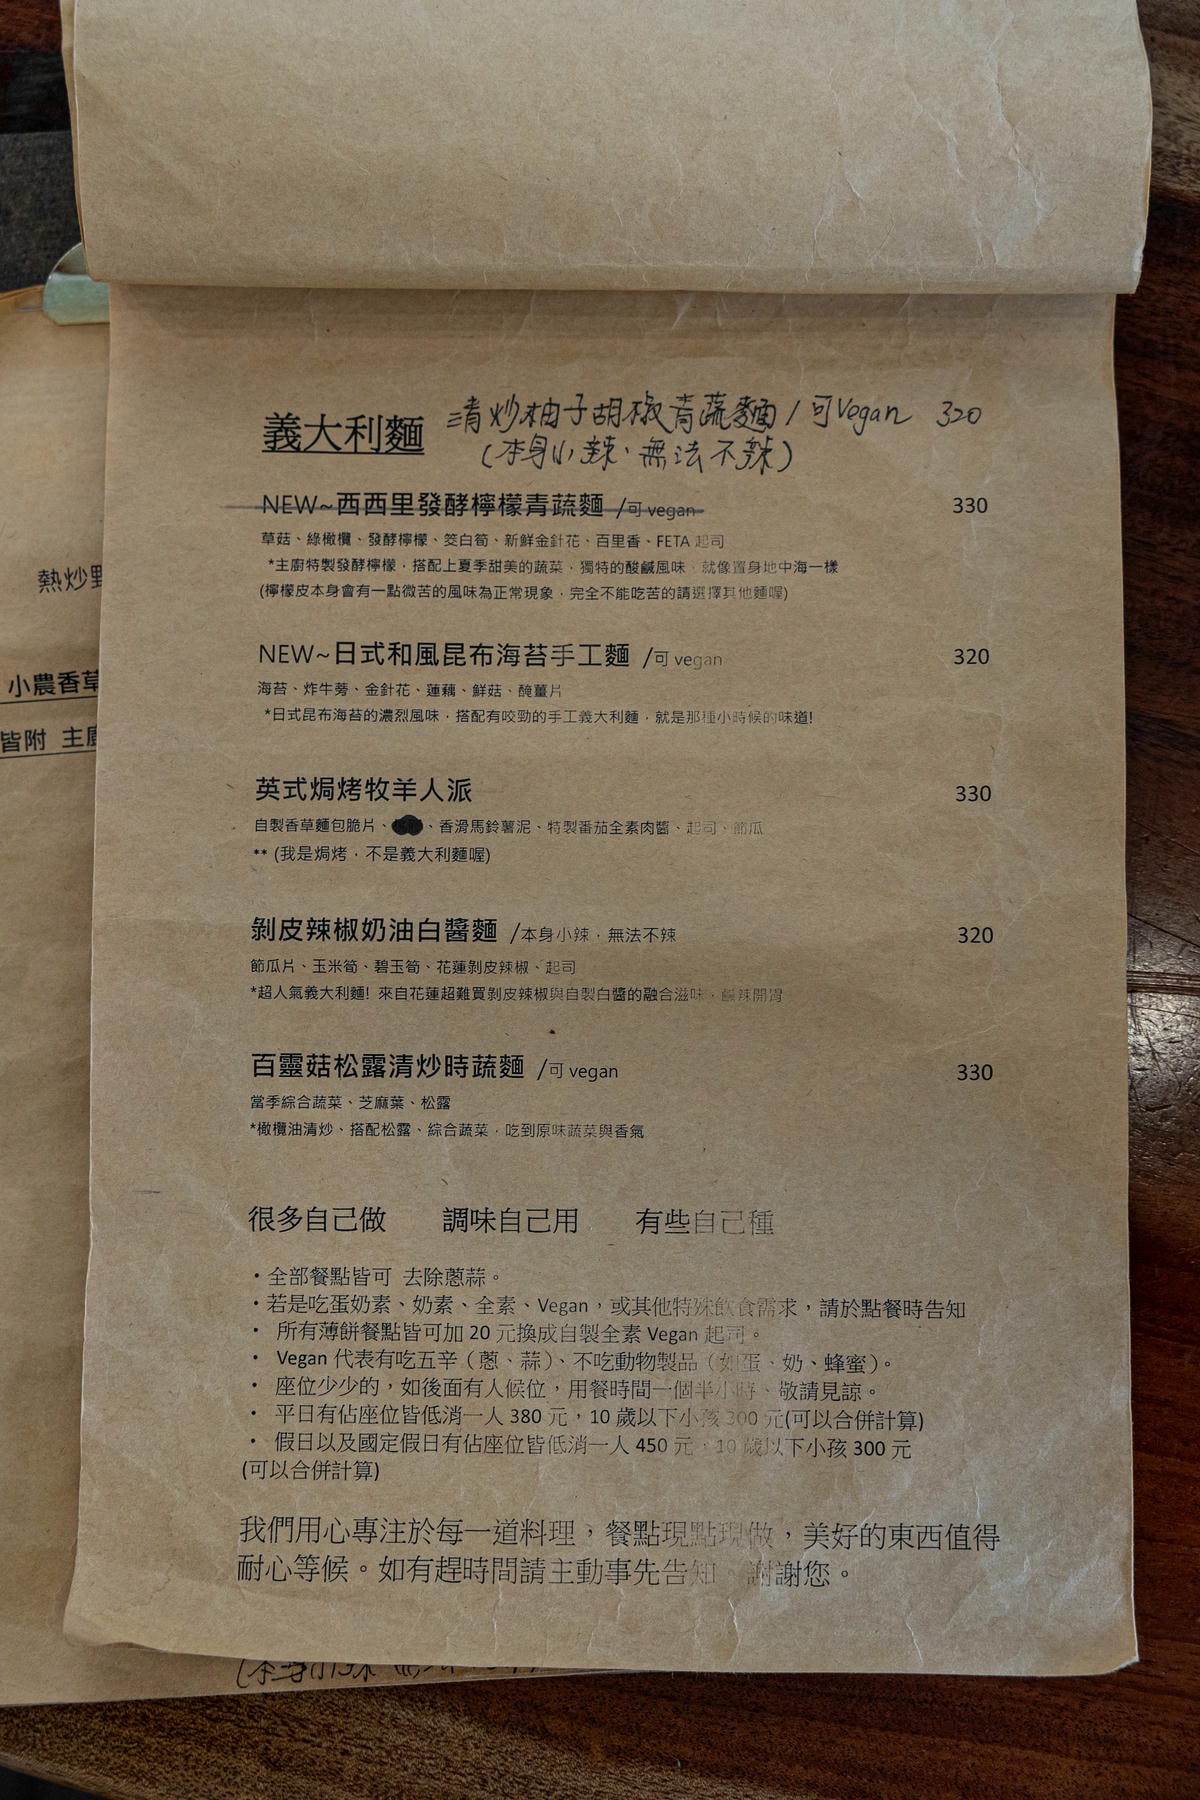 義大利麵 清炒柚子胡椒青蔬麵/可Vegan 320
(本身小辣、無法不辣)
NEW~西西里發酵檸檬青蔬麵 /可 vegan 330
草菇、綠橄欖、發酵檸檬、筊白筍、新鮮金針花、百里香、FETA 起司
*主廚特製發酵檸檬，搭配上夏季甜美的蔬菜，獨特的酸鹹風味，就像置身地中海一樣
(檸檬皮本身會有一點微苦的風味為正常現象，完全不能吃苦的請選擇其他麵喔)
NEW~日式和風昆布海苔手工麵 /可 vegan 320
海苔、炸牛蒡、金針花、蓮藕、鮮菇、醃薑片
*日式昆布海苔的濃烈風味，搭配有咬勁的手工義大利麵，就是那種小時候的味道!
英式焗烤牧羊人派 330
自製香草麵包脆片、、香滑馬鈴薯泥、特製番茄全素肉醬、起司、節瓜
** (我是焗烤，不是義大利麵喔)
剝皮辣椒奶油白醬麵 /本身小辣，無法不辣 320
節瓜片、玉米筍、碧玉筍、花蓮剝皮辣椒、起司
*超人氣義大利麵! 來自花蓮超難買剝皮辣椒與自製白醬的融合滋味，鹹辣開胃
百靈菇松露清炒時蔬麵 /可 vegan 330
當季綜合蔬菜、芝麻葉、松露
*橄欖油清炒、搭配松露、綜合蔬菜，吃到原味蔬菜與香氣
很多自己做 調味自己用 有些自己種
・全部餐點皆可 去除蔥蒜。
・若是吃蛋奶素、奶素、全素、Vegan，或其他特殊飲食需求，請於點餐時告知
・ 所有薄餅餐點皆可加 20 元換成自製全素 Vegan 起司。
・ Vegan 代表有吃五辛（蔥、蒜)、不吃動物製品（如蛋、奶、蜂蜜）。
・ 座位少少的，如後面有人候位，用餐時間一個半小時、敬請見諒。
・ 平日有佔座位皆低消一人 380 元，10 歲以下小孩 300 元(可以合併計算)
・ 假日以及國定假日有佔座位皆低消一人 450 元，10 歲以下小孩 300 元
(可以合併計算)
我們用心專注於每一道料理，餐點現點現做，美好的東西值得
耐心等候。如有趕時間請主動事先告知。謝謝您。
熱炒
小農香草
皆附 主